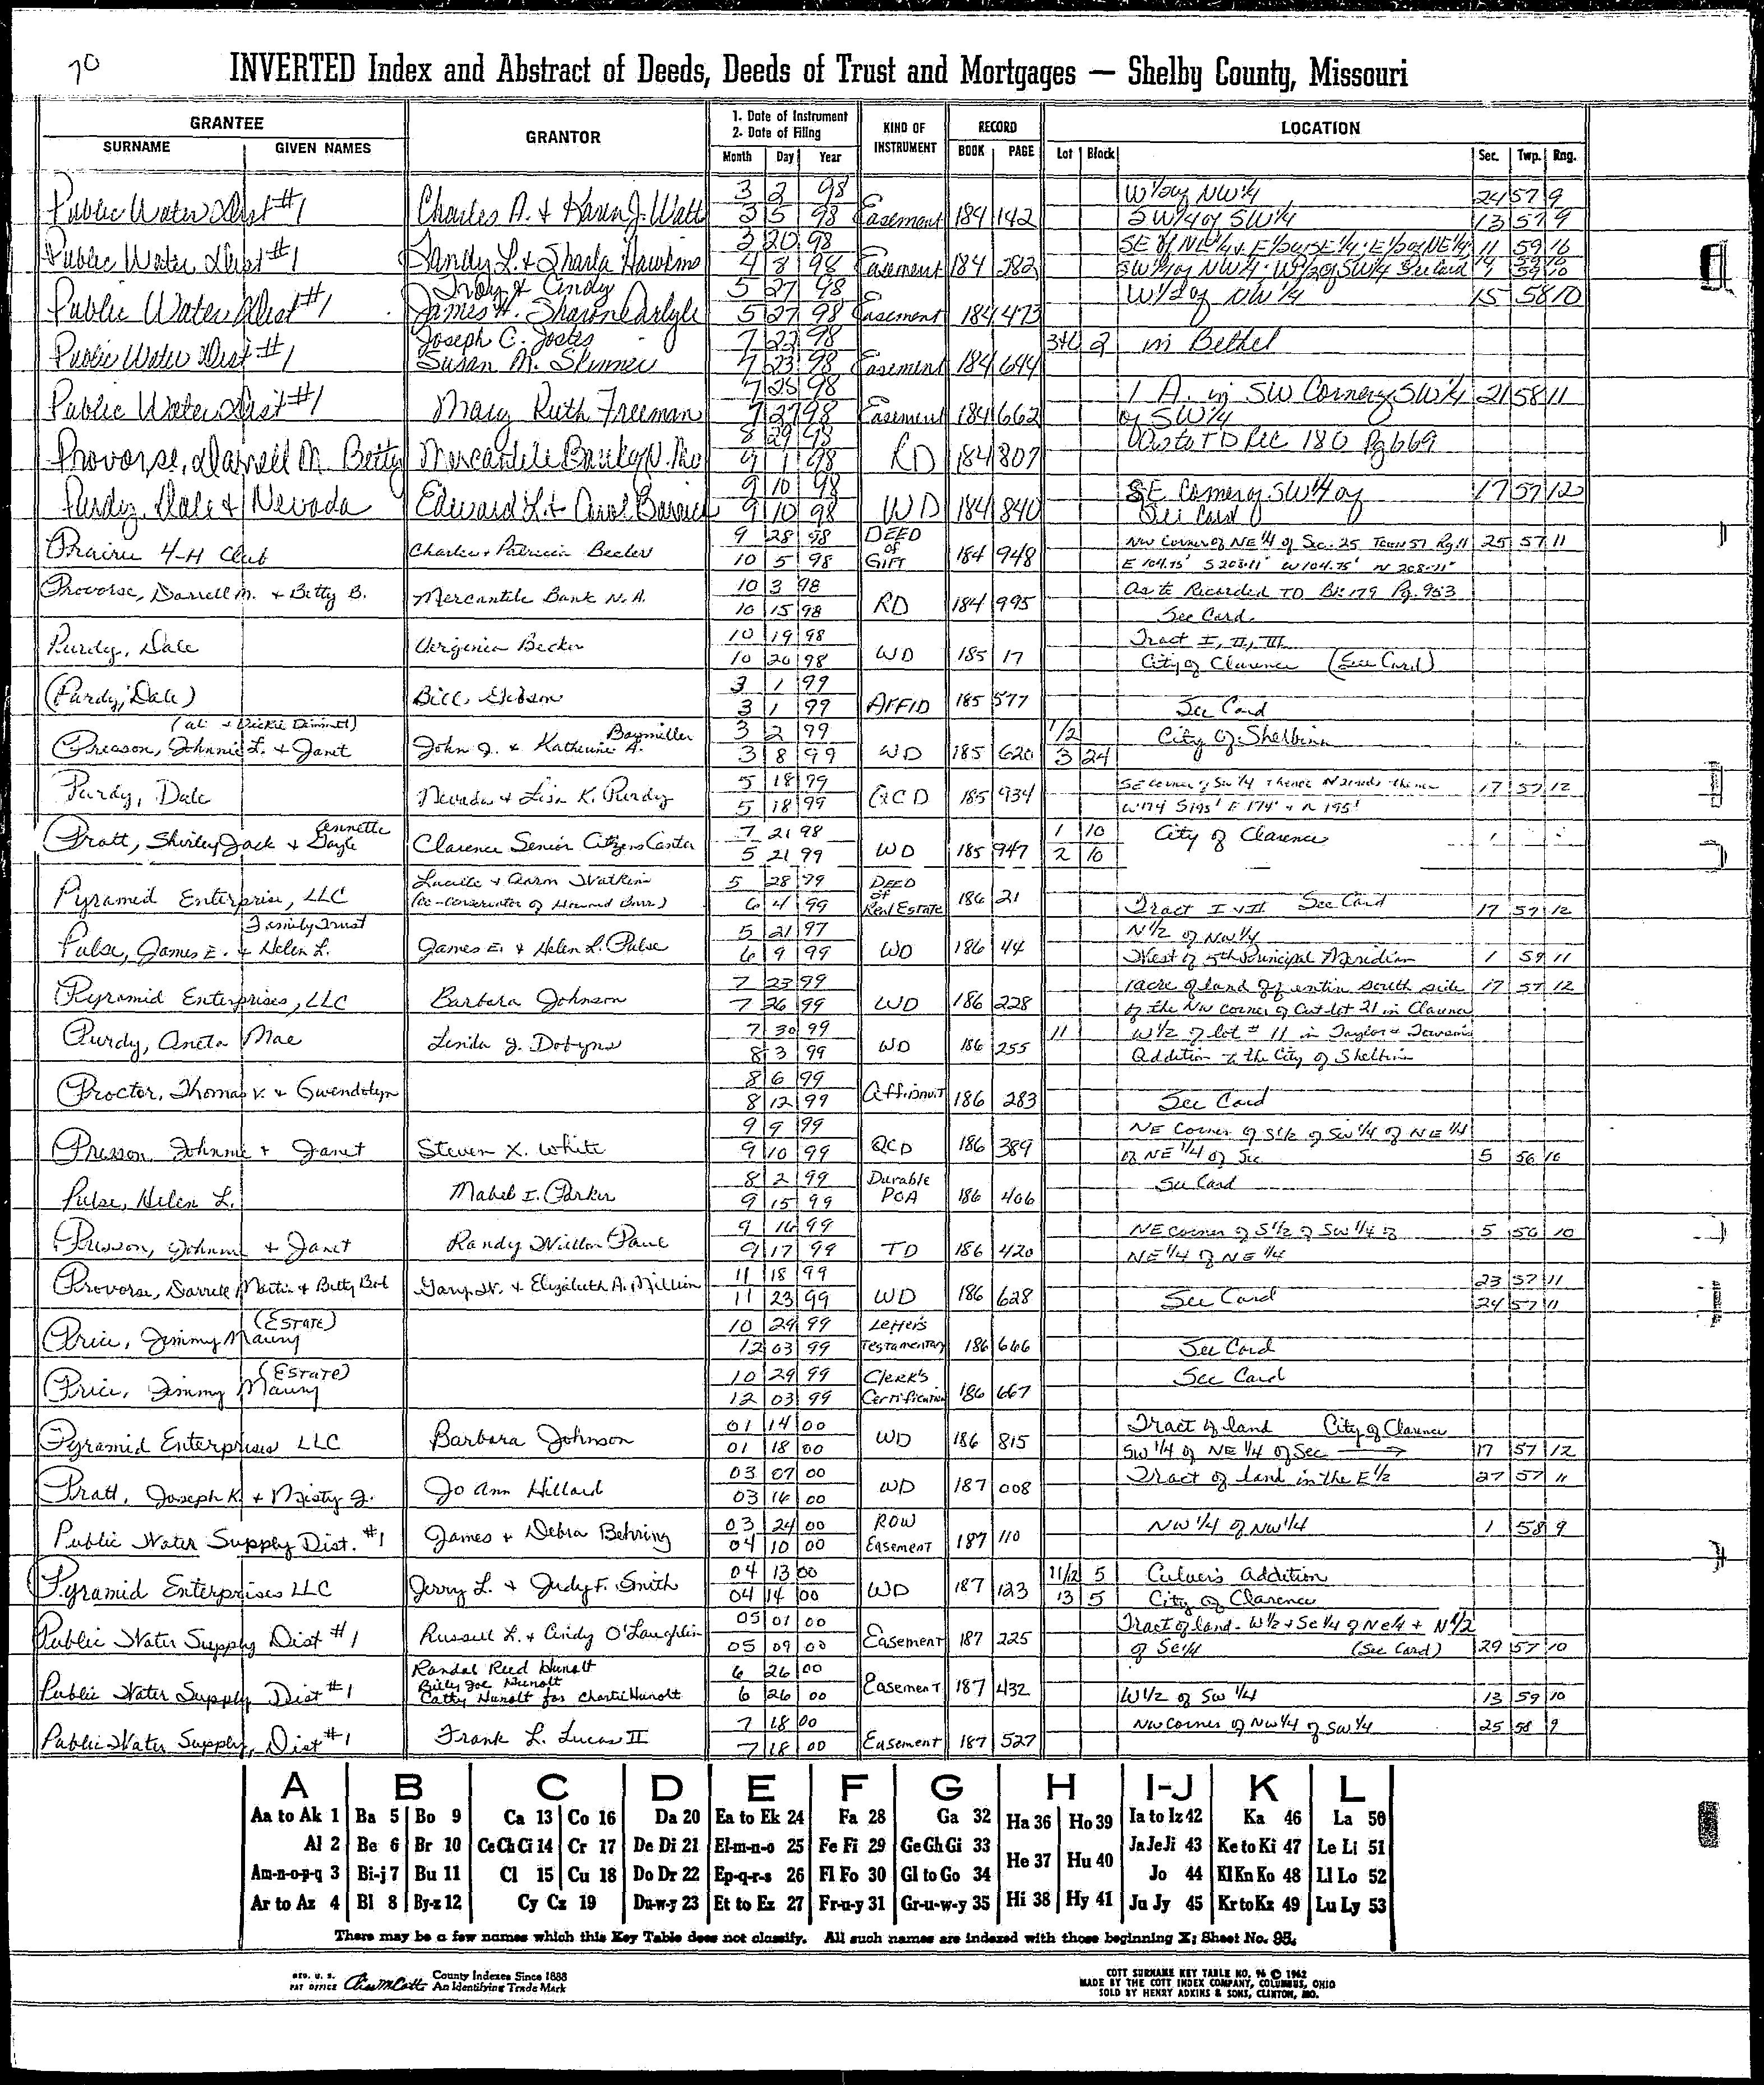 70
INVERTED Index and Abstract of Deeds, Deeds of Trust and Mortgages — Shelby County, Missouri
GRANTEE
SURNAME GIVEN NAMES
GRANTOR
1. Date of Instrument
2. Date of Filing
Month Day Year
KIND OF INSTRUMENT
RECORD
BOOK PAGE
LOCATION
Lot Block Sec. Twp. Rng.
Public Water Dist #1 Charles A. & Karen J. Watt 3 2 98 Easement 184 142 W 1/2 of NW 1/4 24 57 9
3 5 98 SW 1/4 of SW 1/4 13 57 9
Public Water Dist #1 Randy L. & Sharla Hawkins 3 20 98 Easement 184 282 11 59 16
4 8 98 See Card
Public Water Dist #1 Troy & Cindy 5 27 98 Easement 184 473 W 1/2 of NW 1/4 15 58 10
James H. Sharon Carlyle 5 27 98
Public Water Dist #1 Joseph C. Jostes 7 23 98 Easement 184 644 2 in Bethel
Susan M. 7 23 98
Public Water Dist #1 Mary Ruth Freeman 7 25 98 Easement 184 662 1 A. in SW Corner of SW 1/4 21 58 11
7 27 98 of SW 1/4
Provorse, Darrell M Betty Mercantile Bank 8 29 98 RD 184 807 TD Rec 180 Pg 669
9 1 98
Purdy, Dale & Nevada Edward L. & Carol 9 10 98 WD 184 840 SE Corner of SW 1/4 of 17 57 12
9 10 98 See Card
Prairie 4-H Club Charles & Patricia Beeler 9 28 98 DEED of GIFT 184 948 NW Corner of NE 1/4 of Sec. 25 Town 57 Rg 11 25 57 11
10 5 98 E 104.75' S 208.11' W 104.75' N 208.11'
Provorse, Darrell M. & Betty B. Mercantile Bank N.A. 10 3 98 RD 184 995 Recorded TD BK 179 Pg. 953
10 15 98 See Card
Purdy, Dale Virginia Becker 10 19 98 WD 185 17 Tract I, II, III
10 20 98 City of Clarence (See Card)
(Purdy, Dale) Bill Gibson 3 1 99 AFFID 185 577
3 1 99 See Card
Preason, Johnnie L. & Janet John J. & Katherine A. Baymiller 3 2 99 WD 185 620 1/2 City of Shelbina
3 8 99 3 24
Purdy, Dale Nevada & Lisa K. Purdy 5 18 99 QCD 185 934 SE corner of SW 1/4 thence 17 57 12
5 18 99 W 174 S 195' E 174' & N 195'
Pratt, Shirley Jack & Annette Gayle Clarence Senior Citizens Center 7 21 98 WD 185 947 1 10 City of Clarence
5 21 99 2 10
Pyramid Enterprise, LLC Lucille & Aaron Watkins 5 28 99 DEED of Real Estate 186 21
(co-conservator of Howard Burr) 6 4 99 Tract I & II See Card 17 57 12
Family Trust
Pulse, James E. & Helen L. James E. & Helen L. Pulse 5 21 97 WD 186 44 N 1/2 of NW 1/4
6 9 99 West of 5th Principal Meridian 1 59 11
Pyramid Enterprises, LLC Barbara Johnson 7 23 99 WD 186 228 1 acre of land off entire south side 17 57 12
7 26 99 of the NW corner of Out lot 21 in Clarence
Purdy, Aneta Mae Linda J. Dobyns 7 30 99 WD 186 255 11 W 1/2 of lot # 11 in Taylor &
8 3 99 Addition to the City of Shelbina
Proctor, Thomas V. & Gwendolyn 8 6 99 Affidavit 186 283
8 12 99 See Card
Presson Johnnie & Janet Steven X. White 9 9 99 QCD 186 389 NE Corner of S 1/2 of SW 1/4 of NE 1/4
9 10 99 of NE 1/4 of Sec 5 56 10
Pulse, Helen L. Mabel I. Parker 8 2 99 Durable POA 186 406 See Card
9 15 99
Presson, Johnnie & Janet Randy Paul 9 16 99 TD 186 420 NE corner of S 1/2 of SW 1/4 of 5 56 10
9 17 99 NE 1/4 of NE 1/4
Provorse, Darrell Martin & Betty Bob Gary W. & Elizabeth A. Million 11 18 99 WD 186 628 23 57 11
11 23 99 See Card 24 57 11
Price, Jimmy Maury (Estate) 10 29 99 Letters Testamentary 186 666
12 03 99 See Card
Price, Jimmy Maury (Estate) 10 29 99 Clerk's Certification 186 667 See Card
12 03 99
Pyramid Enterprises LLC Barbara Johnson 01 14 00 WD 186 815 Tract of land City of Clarence
01 18 00 SW 1/4 of NE 1/4 of Sec → 17 57 12
Pratt, Joseph K & Misty J. Jo Ann Hillard 03 07 00 WD 187 008 Tract of land in the E 1/2 27 57 11
03 16 00
Public Water Supply Dist. #1 James & Debra Behring 03 24 00 ROW Easement 187 110 NW 1/4 of NW 1/4 1 58 9
04 10 00
Pyramid Enterprises LLC Jerry L. & Judy F. Smith 04 13 00 WD 187 123 11/2 5 Culver's Addition
04 14 00 13 5 City of Clarence
Public Water Supply Dist #1 Russell L. & Cindy O'Laughlin 05 01 00 Easement 187 225 Tract of land - W 1/2 & SE 1/4 of NE 1/4 + N 1/2
05 09 00 of SE 1/4 (See Card) 29 57 10
Public Water Supply Dist #1 Randal Reed Hunolt 6 26 00 Easement 187 432
Billy Joe Hunolt
Cathy Hunolt for Hunolt 6 26 00 W 1/2 of SW 1/4 13 59 10
Public Water Supply, Dist #1 Frank L. Lucas II 7 18 00 Easement 187 527 NW corner of NW 1/4 of SW 1/4 25 58 9
7 18 00
A B C D E F G H I-J K L
Aa to Ak 1 Ba 5 Bo 9 Ca 13 Co 16 Da 20 Ea to Ek 24 Fa 28 Ga 32 Ha 36 Ho 39 Ia to Iz 42 Ka 46 La 50
Al 2 Be 6 Br 10 Ce Ch Ci 14 Cr 17 De Di 21 El-m-n-o 25 Fe Fi 29 Ge Gh Gi 33 He 37 Hu 40 Ja Je Ji 43 Ke to Ki 47 Le Li 51
Am-n-o-p-q 3 Bi-j 7 Bu 11 Cl 15 Cu 18 Do Dr 22 Ep-q-r-s 26 Fl Fo 30 Gl to Go 34 Jo 44 Kl Kn Ko 48 Ll Lo 52
Ar to Az 4 Bl 8 By-z 12 Cy Cz 19 Du-w-y 23 Et to Ez 27 Fr-u-y 31 Gr-u-w-y 35 Hi 38 Hy 41 Ju Jy 45 Kr to Kz 49 Lu Ly 53
There may be a few names which this Key Table does not classify. All such names are indexed with those beginning X; Sheet No. 95.
REG. U. S. PAT OFFICE County Indexes Since 1888
An Identifying Trade Mark
COTT SURNAME KEY TABLE NO. 96 © 1962
MADE BY THE COTT INDEX COMPANY, COLUMBUS, OHIO
SOLD BY HENRY ADKINS & SONS, CLINTON, MO.